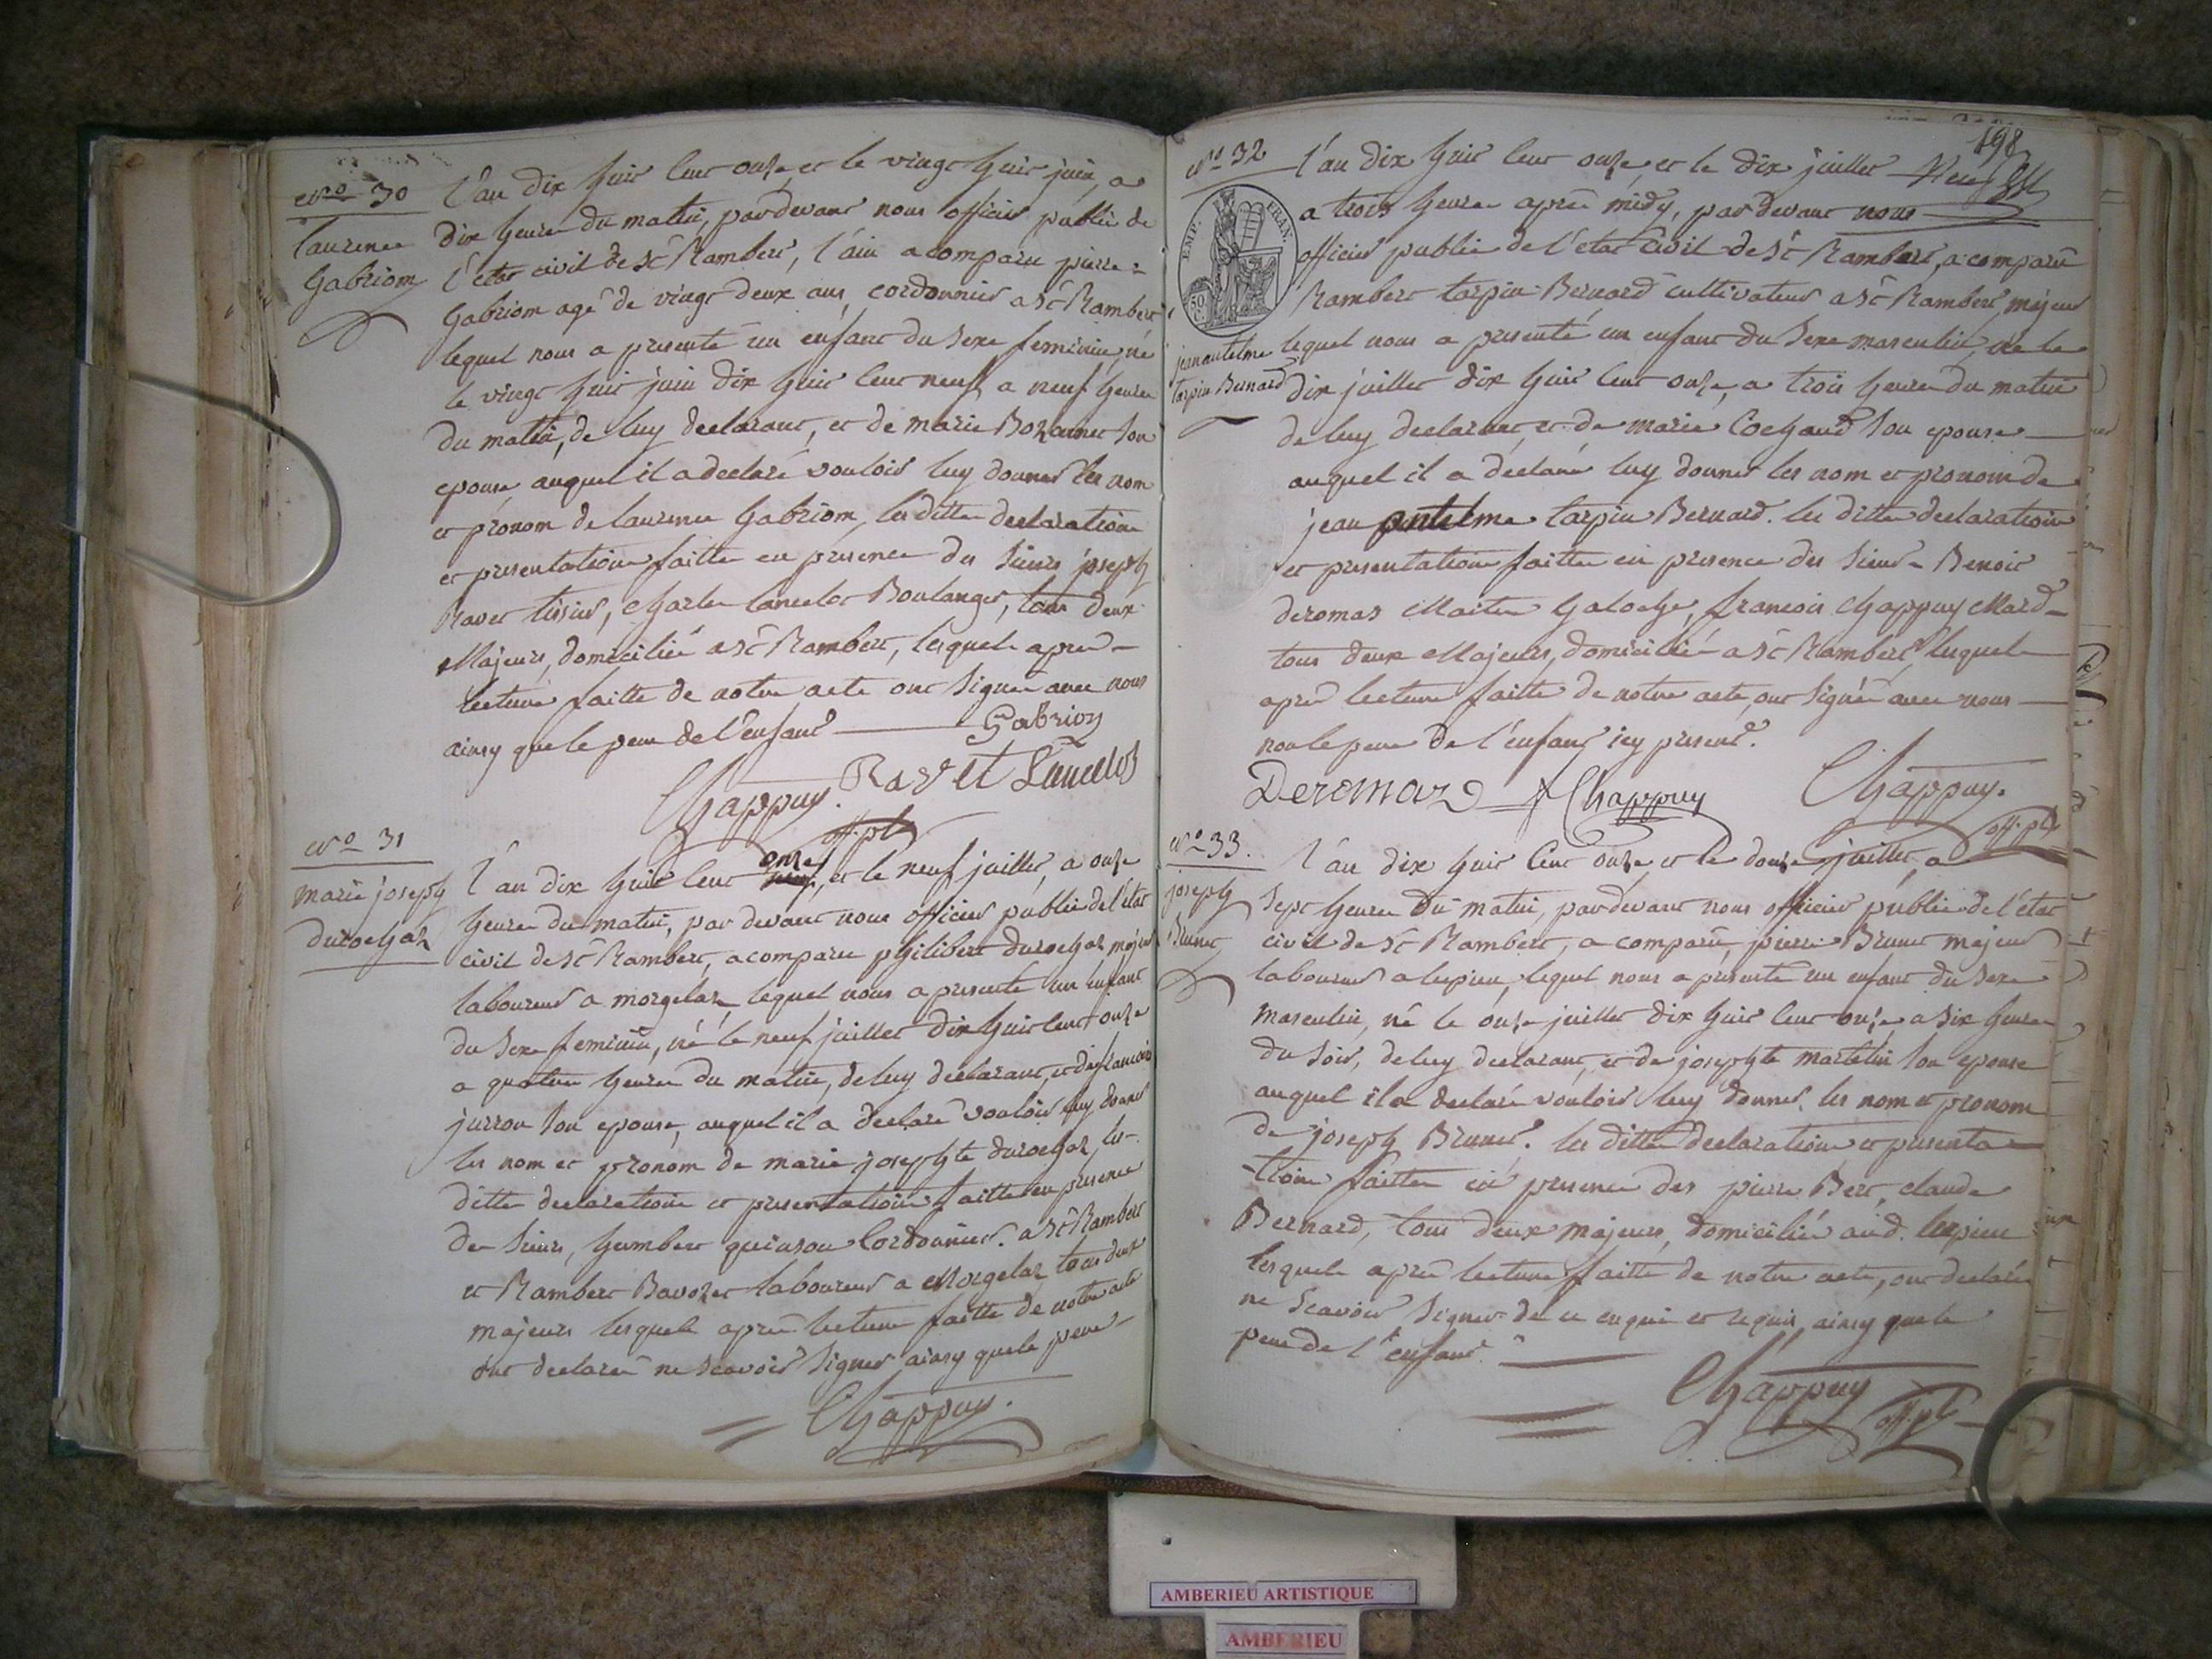 N.o 30
Laurence
Gabriom
L'an dix huit cent onze, et le vingt huit juin, a
dix heures du matin, pardevant nous officier public de
l'etat civil de St Rambert, l'ain a comparu pierre
Gabriom agé de vingt deux ans, cordonnier a St Rambert
lequel nous a presenté un enfant du sexe feminin, né
le vingt huit juin dix huit cent neuf, a neuf heures
du matin, de luy declarant, et de marie Bozonnet son
epouse auquel il a declaré vouloir luy donner les nom
et prenom de laurence Gabriom, les dittes declaration
et presentation faittes en presence des sieurs joseph
Ravet tissier, Charles Lancelot Boulanger, tous deux
Majeurs, domicilié a St Rambert, lesquels apres
lecture faitte de notre acte ont signer avec nous
ainsy que le pere de l'enfant Gabrion
Chappuy. Ravet Lancelot
off. pb
N.o 31
marie joseph
durochat
L'an dix huit cent onze, et le neuf juillet, a onze
heures du matin, par devant nous officier public de l'etat
civil de St Rambert, a comparu philibert durochat majeur
laboureur a morgelas, lequel nous a presenté un enfant
du sexe feminin, né le neuf juillet dix huit cent onze
a quatre heures du matin, de luy declarant, et de francoise
jurron son epouse, auquel il a declaré vouloir luy donner
les nom et pronom de marie josephte durochat, les
dittes declaration et presentation faitte en presence
des sieurs, humbert quinson Cordonnier a St Rambert
et Rambert Bavozet laboureur a Morgelas tous deux
majeurs lesquels apres lecture faitte de notre acte
ont declaré ne scavoir signer ainsy que le pere
Chappuy.
198
N.o 32
EMP. FRAN.
50 C
jean antelme
tarpin Bernard
L'an dix huit cent onze, et le dix juillet
a trois heures apres midy, par devant nous
officier public de l'etat civil de St Rambert, a comparu
Rambert tarpin Bernard cultivateur a St Rambert, majeur
lequel nous a presenté un enfant du sexe masculin, né le
dix juillet dix huit cent onze, a trois heures du matin
de luy declarant et de marie Cochand son epouse
auquel il a déclaré luy donner les nom et pronom de
jean antelme tarpin Bernard. les dittes declaration
et presentation faittes en presence des sieurs Benoit
deromas Maitre Galoche, francois Chappuy Mard
tous deux Majeurs, domicilié a St Rambert, lesquels
apres lecture faitte de notre acte, ont signé avec nous
non le pere de l'enfant icy present.
Deromaz f Chappuy Chappuy.
off. pb
N.o 33.
joseph
Brunet
L'an dix huit cent onze et le douze juillet, a
sept heures du matin, pardevant nous officier public de l'etat
civil de St Rambert, a comparu, pierre Brunet majeur
laboureur a lupieu, lequel nous a presenté un enfant du sexe
masculin, né le onze juillet dix huit cent onze a six heures
du soir, de luy declarant, et de josephte martelin son epouse
auquel il a declaré vouloir luy donner les nom et pronom
de joseph Brunet. les dittes declaration et presenta
tion faittes en presence des pierre Bert, claude
Bernard, tous deux majeurs, domicilié aud. lupieu
lesquels apres lecture faitte de notre acte, ont declaré
ne scavoir signer de ce enquis et requis ainsy que le
pere de l'enfant.
Chappuy
off. pb
AMBERIEU ARTISTIQUE
AMBERIEU